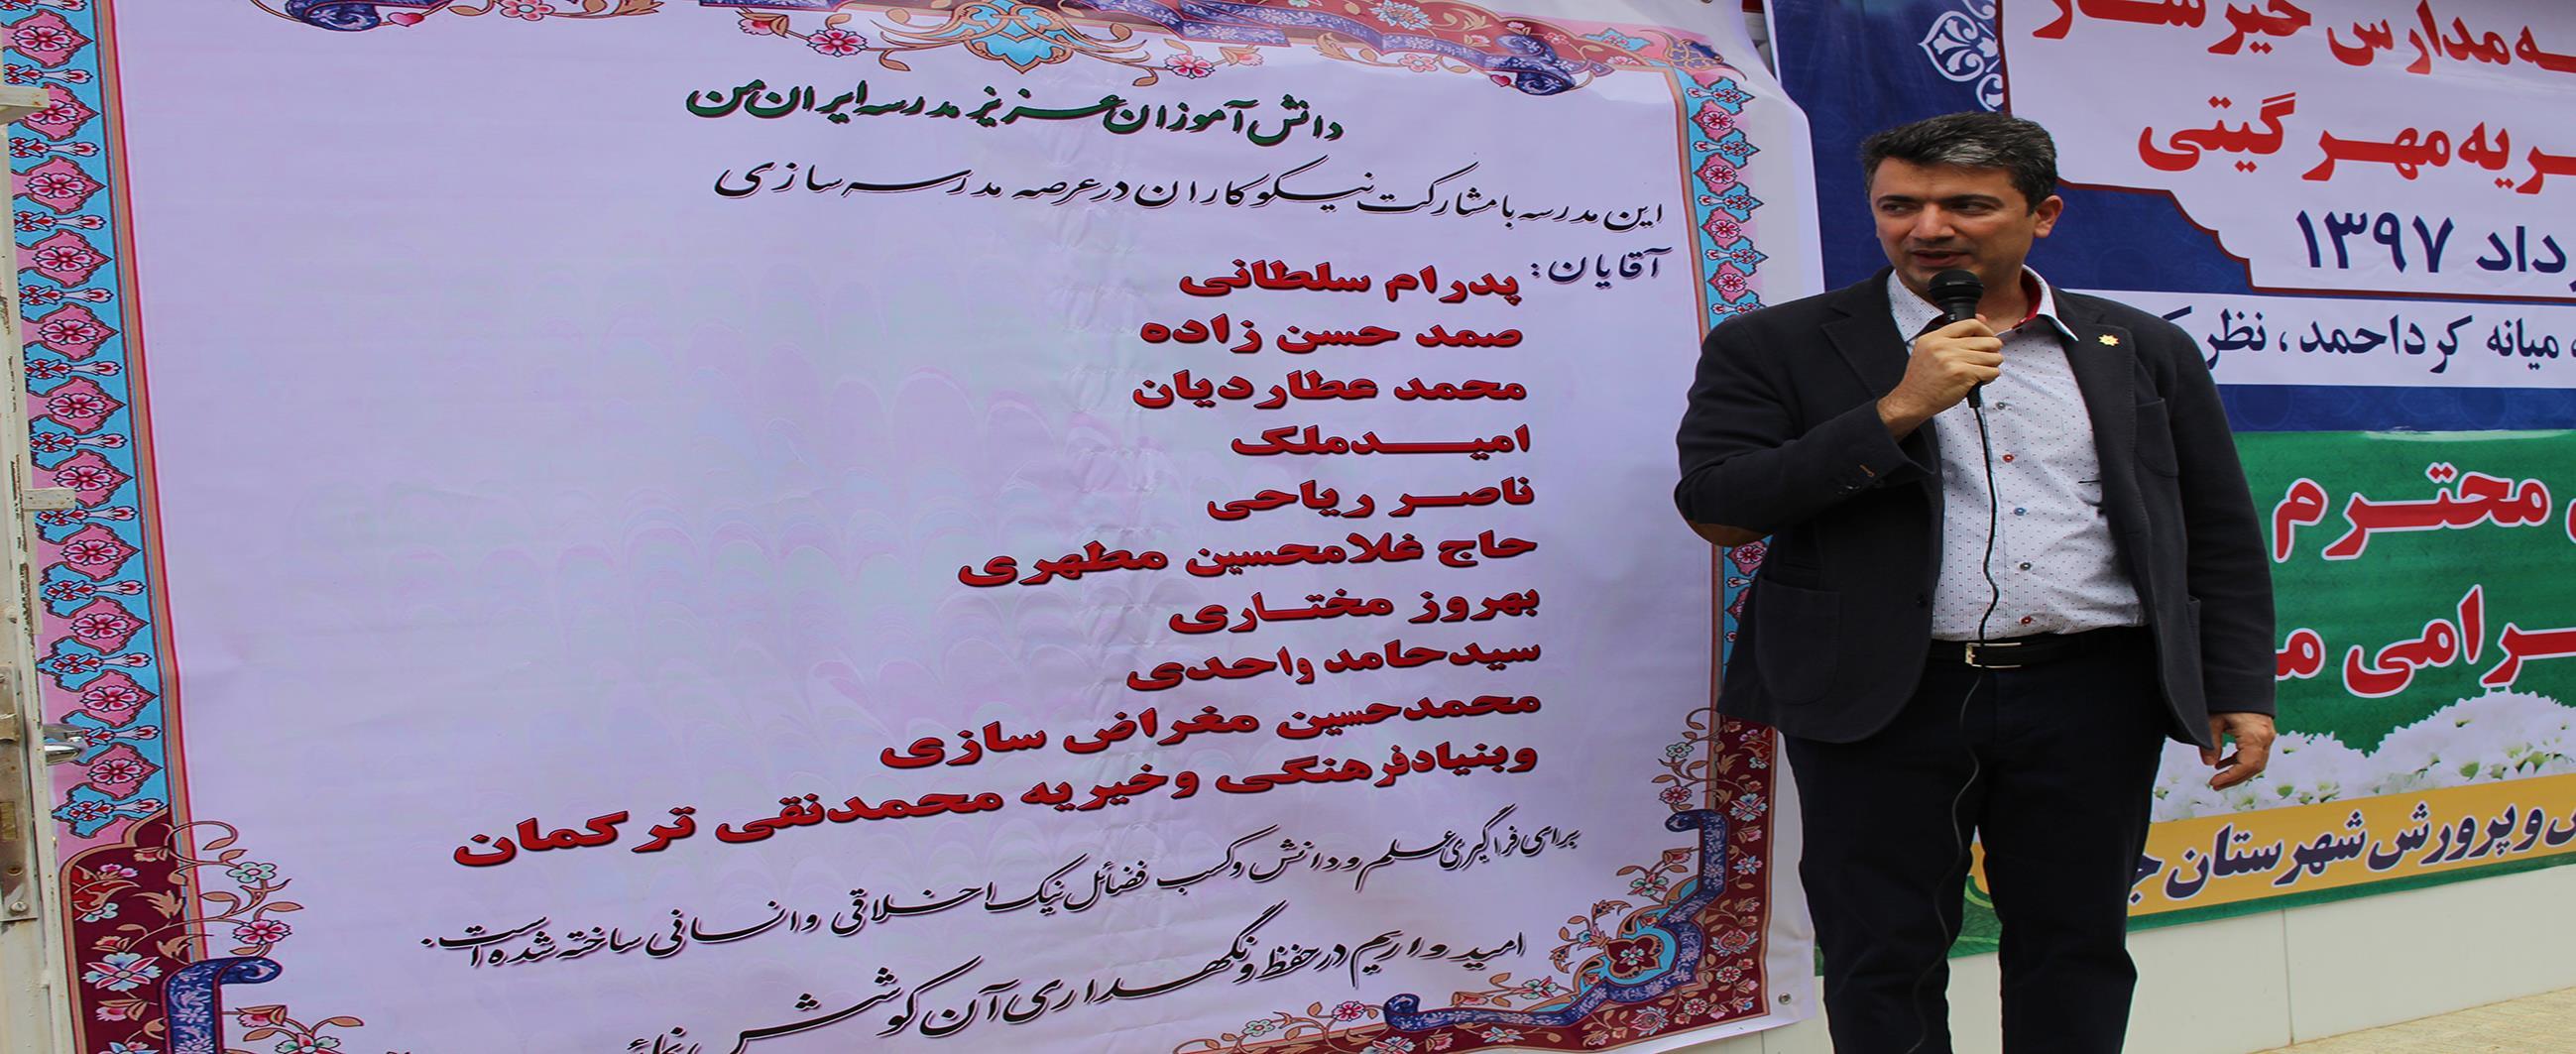 دانش آموزان عزیز مدرسه ایران من
این مدرسه با مشارکت نیکوکاران در عرصه مدرسه سازی
آقایان: پدرام سلطانی
صمد حسن زاده
محمد عطاردیان
امیدملک
ناصر ریاحی
حاج غلامحسین مطهری
بهروز مختاری
سیدحامد واحدی
محمدحسین مغراض سازی
وبنیادفرهنگی وخیریه محمدنقی ترکمان
برای فراگیری علم و دانش وکسب فضائل نیک اخلاقی وانسانی ساخته شده است.
امید واریم در حفظ ونگهداری آن کوشش
ـه مدارس خیر ساز
ـریه مهر گیتی
داد ۱۳۹۷
میانه کرداحمد، نظر
محترم
ـرامی
وپرورش شهرستان